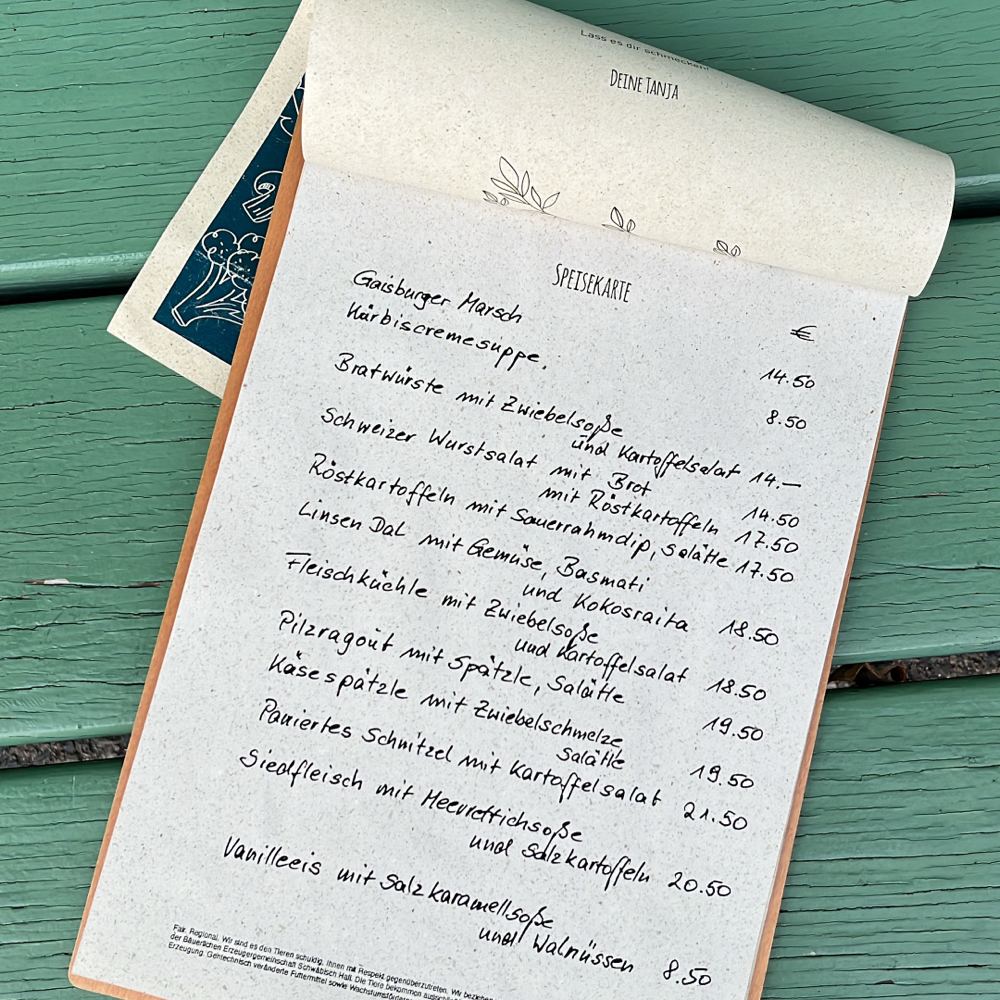 Lass es dir schmecken!
DEINE TANJA
SPEISEKARTE
€
Gaisburger Marsch 14.50
Kürbiscremesuppe. 8.50
Bratwürste mit Zwiebelsoße
und Kartoffelsalat 14.—
Schweizer Wurstsalat mit Brot 14.50
mit Röstkartoffeln 17.50
Röstkartoffeln mit Sauerrahmdip, Salätle 17.50
Linsen Dal mit Gemüse, Basmati
und Kokosraita 18.50
Fleischküchle mit Zwiebelsoße
und Kartoffelsalat 18.50
Pilzragout mit Spätzle, Salätle 19.50
Käsespätzle mit Zwiebelschmelze
Salätle 19.50
Paniertes Schnitzel mit Kartoffelsalat 21.50
Siedfleisch mit Meerrettichsoße
und Salzkartoffeln 20.50
Vanilleeis mit Salzkaramellsoße
und Walnüssen 8.50
Fair. Regional. Wir sind es den Tieren schuldig, ihnen mit Respekt gegenüberzutreten. Wir beziehen
der Bäuerlichen Erzeugergemeinschaft Schwäbisch Hall. Die Tiere bekommen
Erzeugung. Gentechnisch veränderte Futtermittel sowie